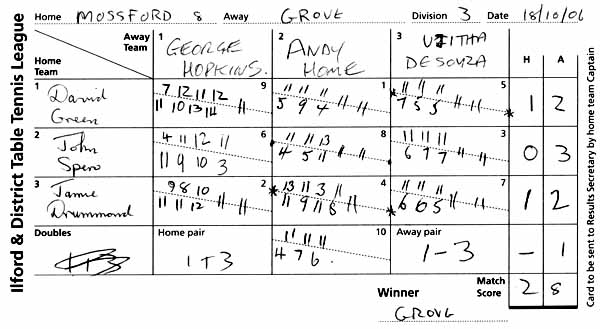 Ilford & District Table Tennis League
Home MOSSFORD 8 Away GROVE Division 3 Date 18/10/06
Away Team
Home Team
1 GEORGE HOPKINS.
2 ANDY HOME
3 DE SOUZA
H A
1 David Green
9 7 12 11 12
11 10 13 14 11
1 11 11 11
5 9 4 11 11
5 11 11 11
7 5 5 11 11
1 2
2 John Spero
6 4 11 12 11
11 9 10 3
8 11 11 13
4 5 11 11 11
3 11 11 11
6 7 7 11 11
0 3
3 Jamie Drummond
2 9 8 10
11 11 12 11 11
4 13 11 3 11
11 9 11 8 11
7 11 11 11
6 0 5 11 11
1 2
Doubles
Home pair
1 + 3
10 11 11 11
4 7 6
Away pair
1 - 3
- 1
Winner
GROVE
Match Score
2 8
Card to be sent to Results Secretary by home team Captain